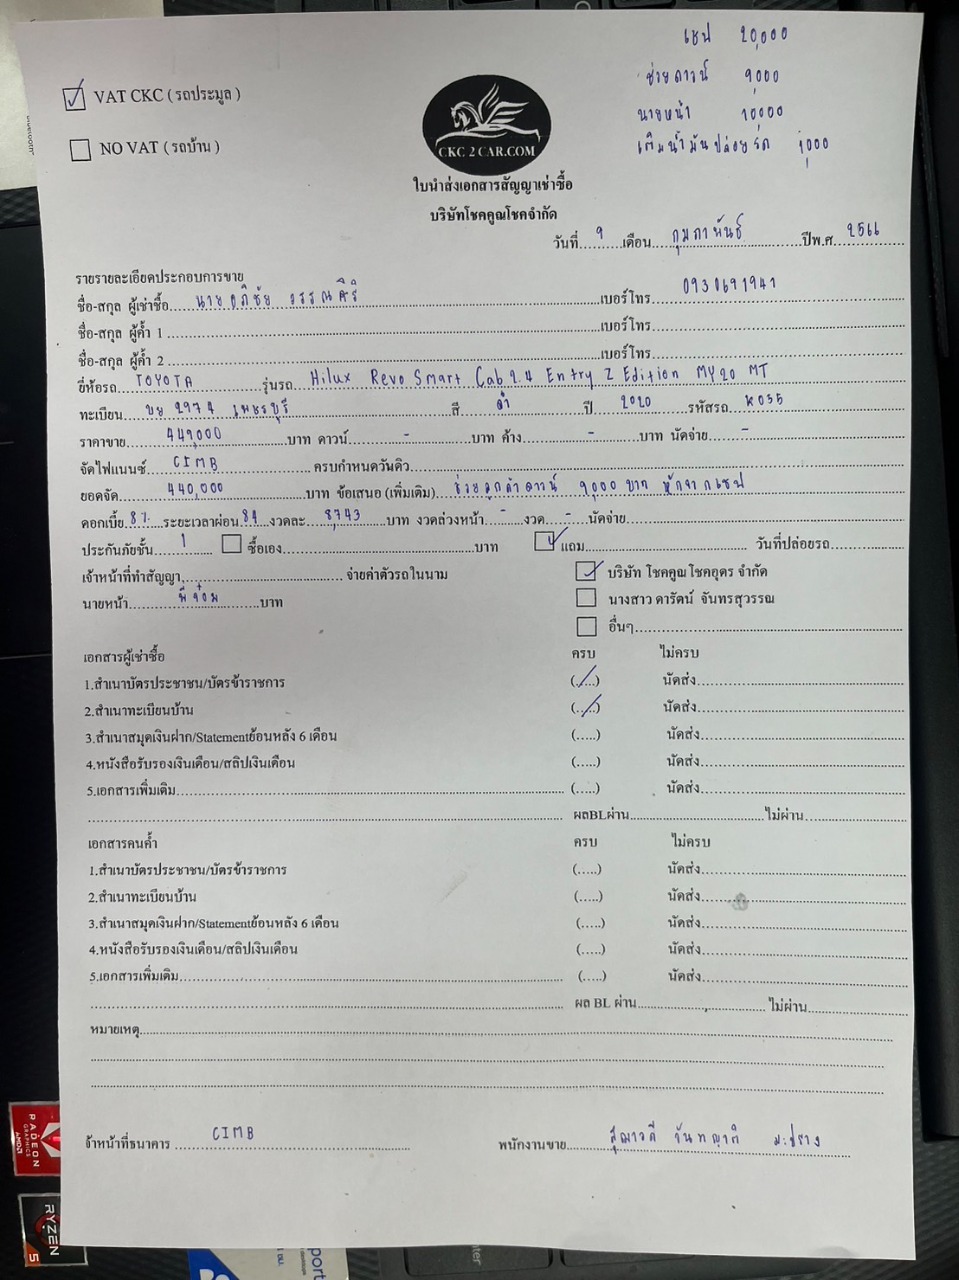 เซฟ 20,000
ช่วยดาวน์ 9,000
นายหน้า 10,000
เติมน้ำมันปล่อยรถ 1,000
VAT CKC ( รถประมูล )
NO VAT ( รถบ้าน )
CKC 2 CAR.COM
ใบนำส่งเอกสารสัญญาเช่าซื้อ
บริษัทโชคคูณโชคจำกัด
วันที่ 9 เดือน กุมภาพันธ์ ปีพ.ศ. 2566
รายรายละเอียดประกอบการขาย
ชื่อ-สกุล ผู้เช่าซื้อ นายอภิชัย วรรณศิริ เบอร์โทร 0930691941
ชื่อ-สกุล ผู้ค้ำ 1 เบอร์โทร
ชื่อ-สกุล ผู้ค้ำ 2 เบอร์โทร
ยี่ห้อรถ TOYOTA รุ่นรถ Hilux Revo Smart Cab 2.4 Entry Z Edition MY20 MT
ทะเบียน บย 2974 เพชรบุรี สี ดำ ปี 2020 รหัสรถ K035
ราคาขาย 449,000 บาท ดาวน์ - บาท ค้าง - บาท นัดจ่าย -
จัดไฟแนนซ์ CIMB ครบกำหนดวันดิว
ยอดจัด 440,000 บาท ข้อเสนอ (เพิ่มเติม) ช่วยลูกค้าดาวน์ 9,000 บาท หักจากเซฟ
ดอกเบี้ย 8% ระยะเวลาผ่อน 84 งวดละ 8,743 บาท งวดล่วงหน้า - งวด - นัดจ่าย
ประกันภัยชั้น 1 ซื้อเอง บาท แถม วันที่ปล่อยรถ
เจ้าหน้าที่ทำสัญญา จ่ายค่าตัวรถในนาม บริษัท โชคคูณโชคอุดร จำกัด
นายหน้า พี่จ๋อม บาท นางสาว ดารัตน์ จันทรสุวรรณ
อื่นๆ
เอกสารผู้เช่าซื้อ ครบ ไม่ครบ
1.สำเนาบัตรประชาชน/บัตรข้าราชการ (.....) นัดส่ง
2.สำเนาทะเบียนบ้าน (.....) นัดส่ง
3.สำเนาสมุดเงินฝาก/Statementย้อนหลัง 6 เดือน (.....) นัดส่ง
4.หนังสือรับรองเงินเดือน/สลิปเงินเดือน (.....) นัดส่ง
5.เอกสารเพิ่มเติม (.....) นัดส่ง
ผลBLผ่าน ไม่ผ่าน
เอกสารคนค้ำ ครบ ไม่ครบ
1.สำเนาบัตรประชาชน/บัตรข้าราชการ (.....) นัดส่ง
2.สำเนาทะเบียนบ้าน (.....) นัดส่ง
3.สำเนาสมุดเงินฝาก/Statementย้อนหลัง 6 เดือน (.....) นัดส่ง
4.หนังสือรับรองเงินเดือน/สลิปเงินเดือน (.....) นัดส่ง
5.เอกสารเพิ่มเติม (.....) นัดส่ง
ผล BL ผ่าน ไม่ผ่าน
หมายเหตุ
จ้าหน้าที่ธนาคาร CIMB พนักงานขาย สุฌาวดี จันทญาติ ม.ปราง
AMD RADEON GRAPHICS
RYZEN 5